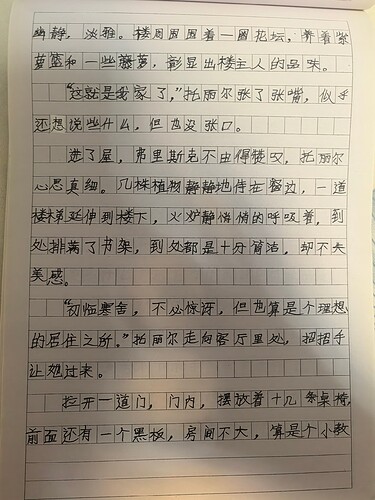 幽静，淡雅。楼周围围着一圈花坛，养着紫
萝蓝和一些藤萝，彰显出楼主人的品味。
“这就是我家了，”托丽尔张了张嘴，似乎
还想说些什么，但也没张口。
进了屋，弗里斯克不由得赞叹，托丽尔
心思真细。几株植物静静地侍在窗边，一道
楼梯延伸到楼下，火炉静悄悄的呼吸着，到
处排满了书架，到处都是十分简洁，却不失
美感。
“初临寒舍，不必惊讶，但也算是个理想
的居住之所。”托丽尔走向客厅里处，招招手
让她过来。
拉开一道门，门内，摆放着十几条桌椅，
前面还有一个黑板，房间不大，算是个小教